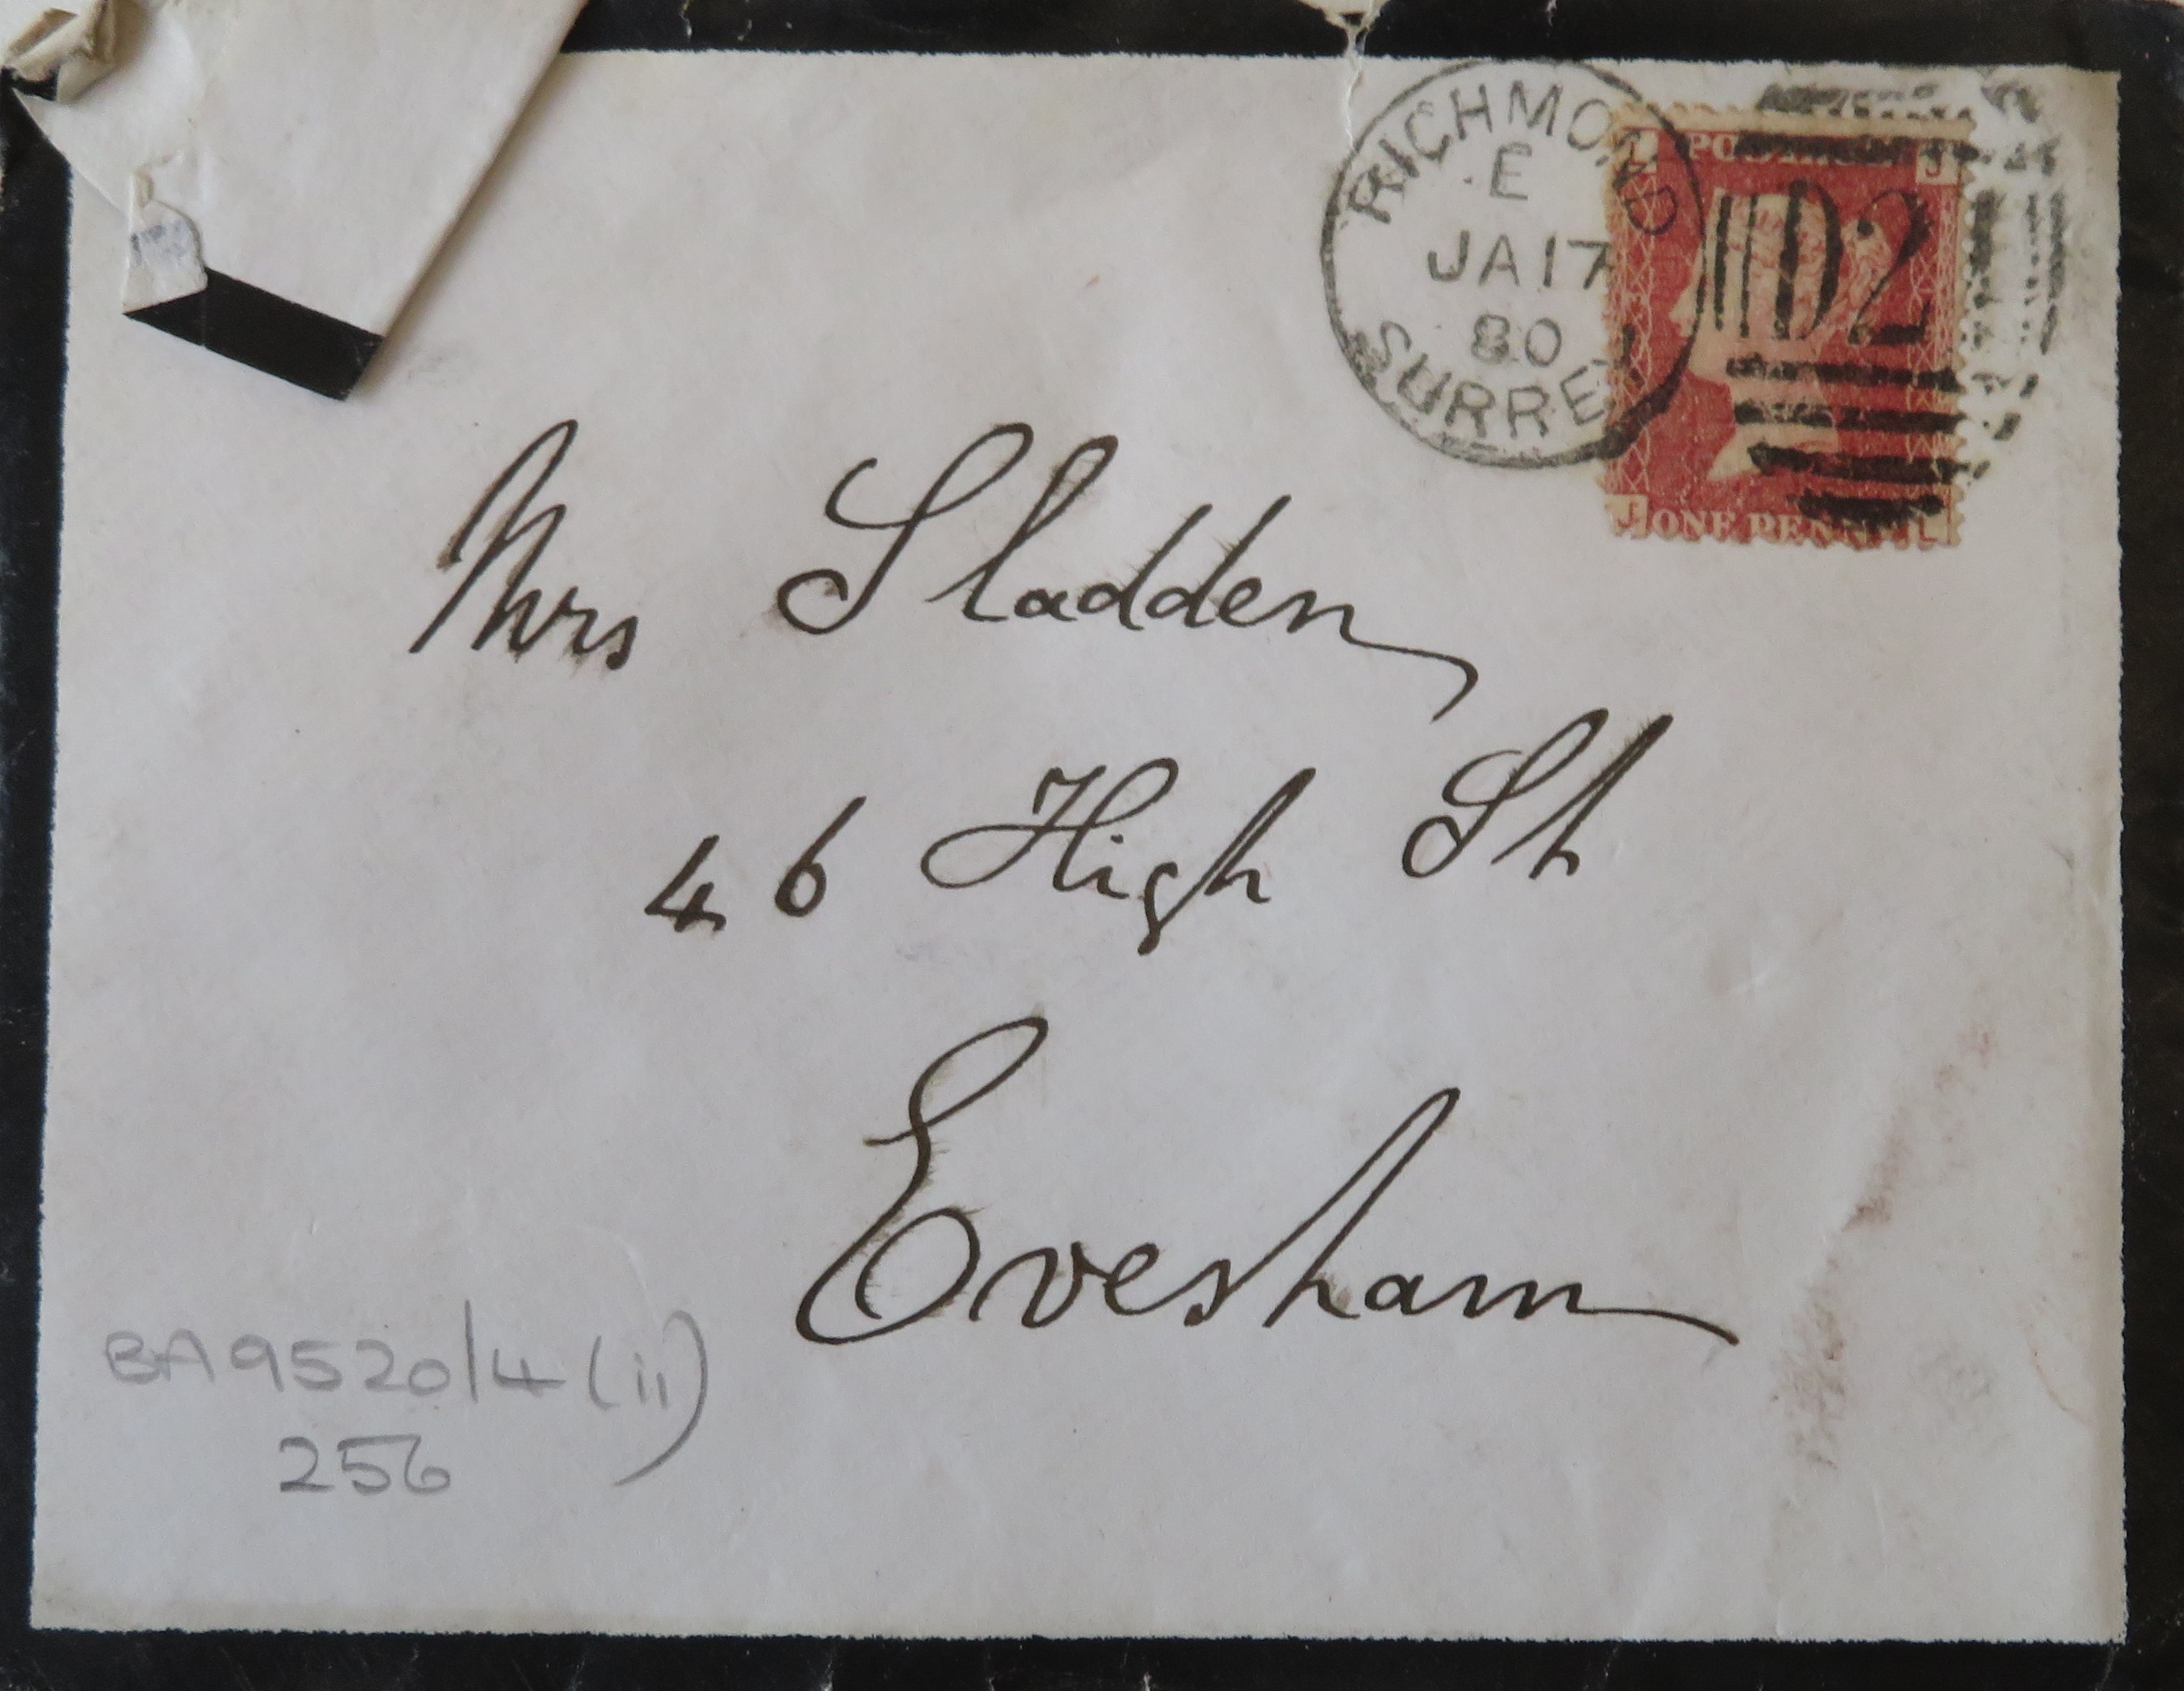 RICHMOND
E
JA 17
80
SURREY
D2
J
ONE PENNY
J L
Mrs Sladden
46 High St
Evesham
BA9520/4 (ii)
256